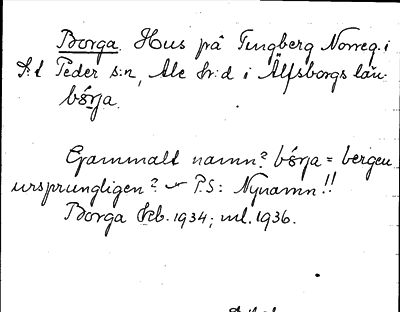 Borga. Hus på Tingberg Norreg. i
S:t Peder s:n, Ale hr:d i Älfsborgs län.
bórja.
Gammalt namn? bórja = bergen
ursprungligen? — P.S: Nynamn!!
Borga 1934; 1936.